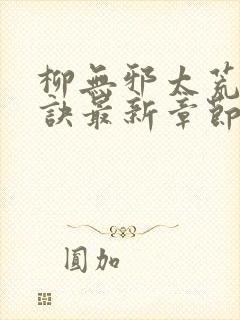 柳無邪太荒
訣最新章節
圓加